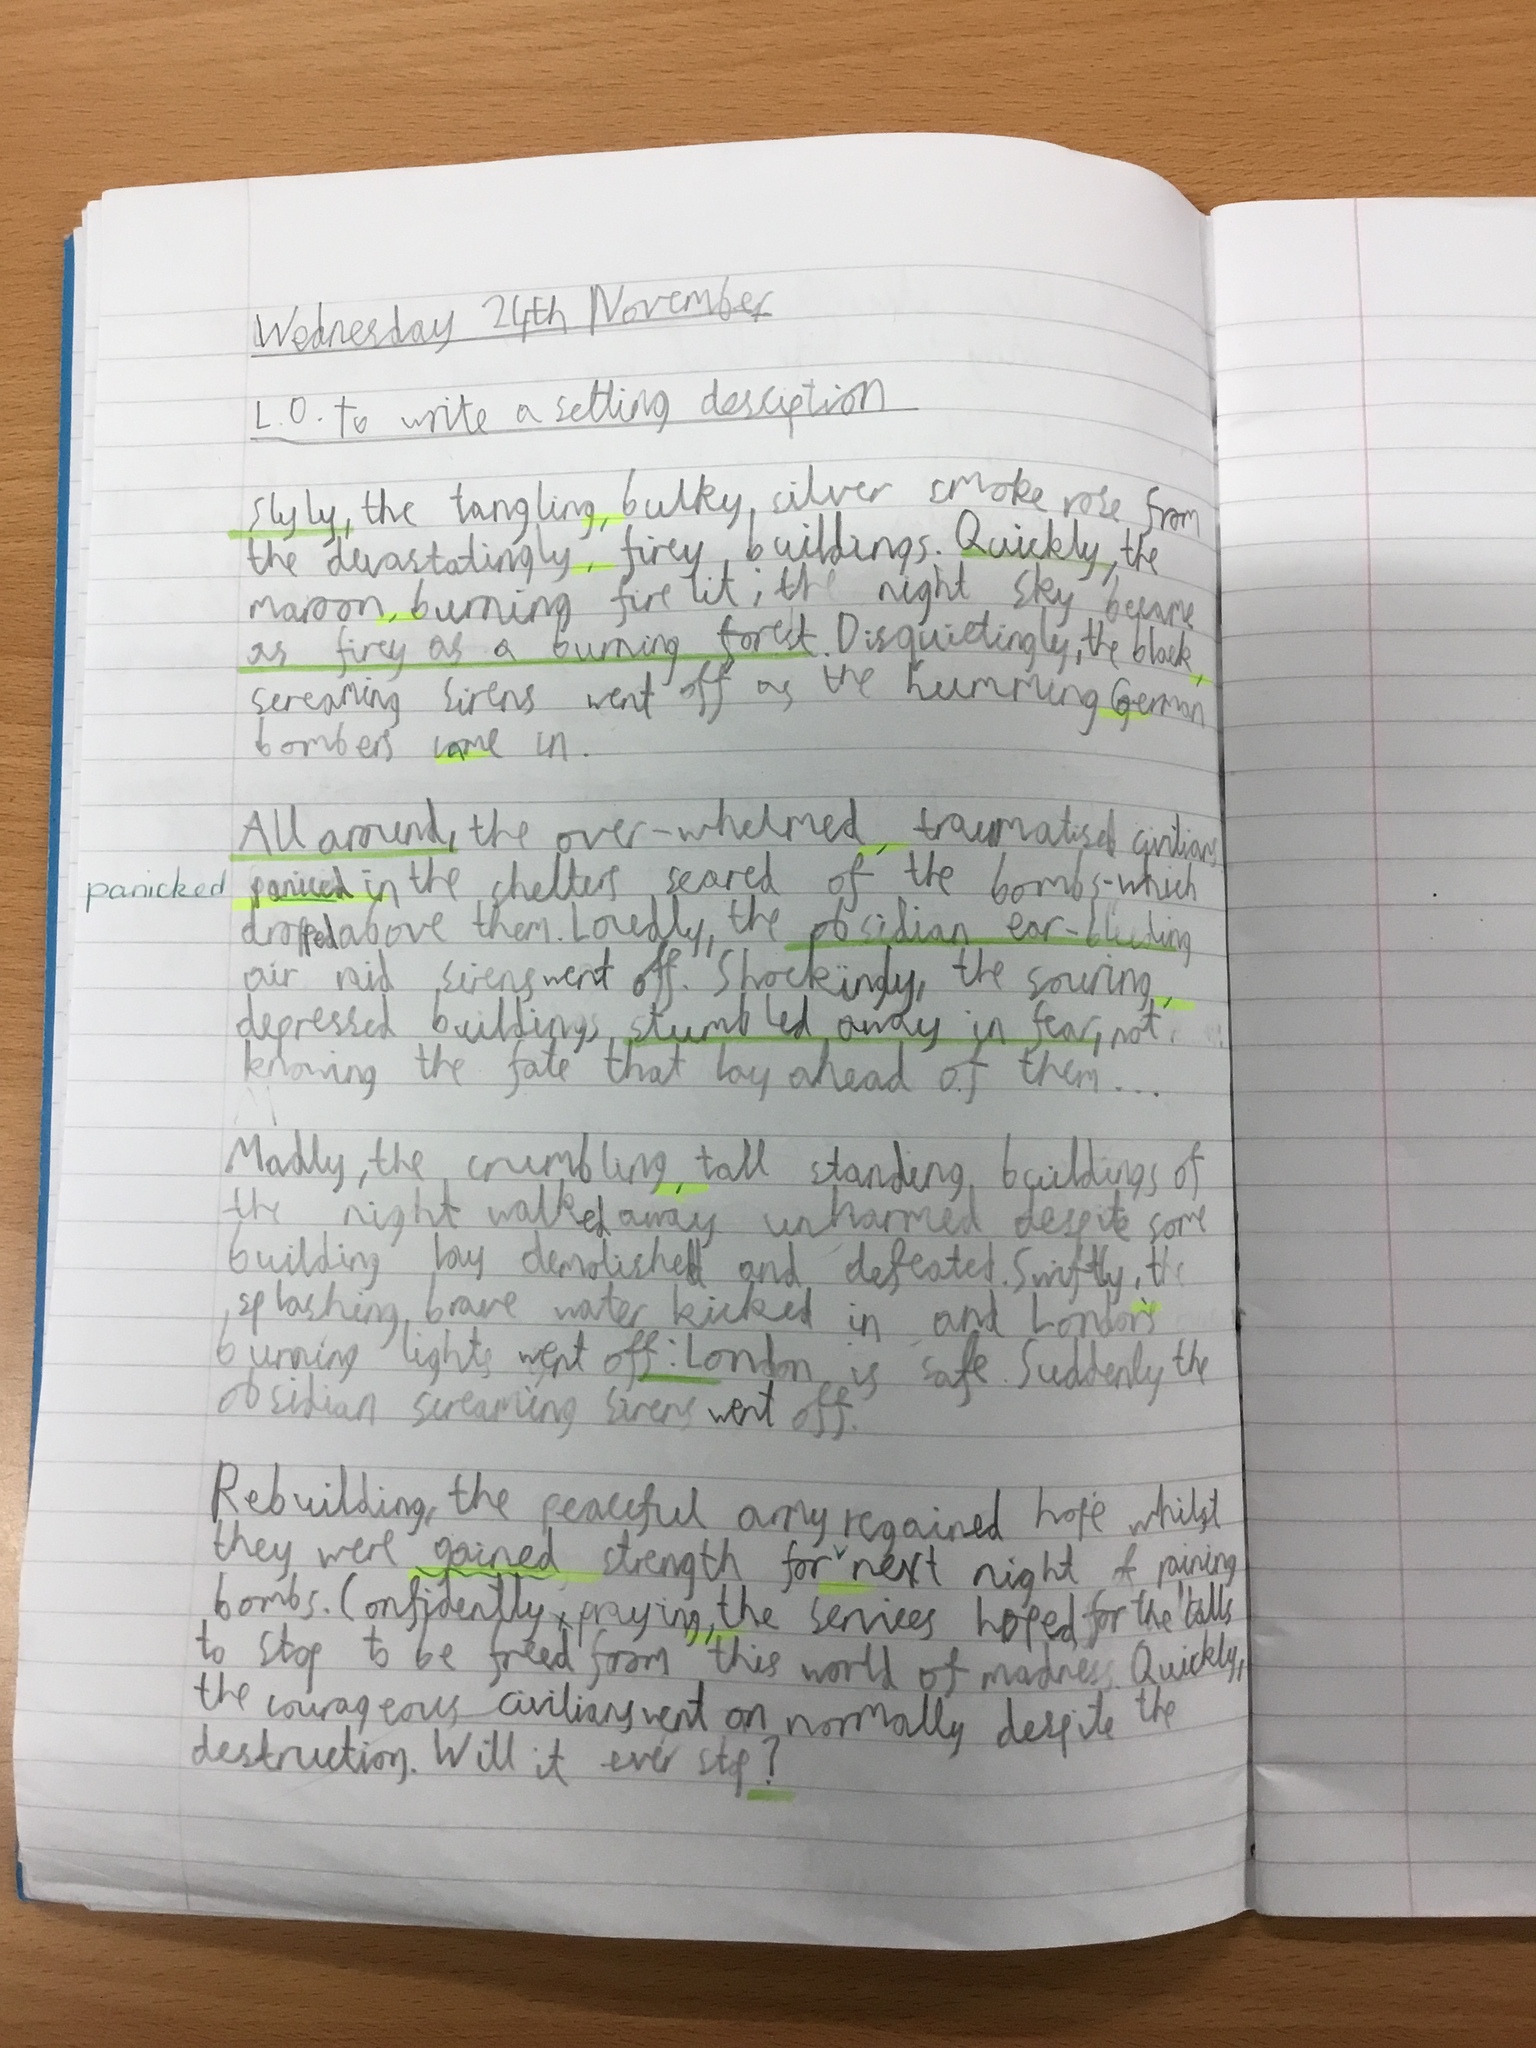 Wednesday 24th November
L.O. to write a setting desciption
Slyly, the tangling, bulky, silver smoke rose from
the devastatingly, firey buildings. Quickly, the
maroon, burning fire lit; the night sky became
as firey as a burning forest. Disquietingly, the black,
screaming sirens went off as the humming German
bombers came in.
All around, the over-whelmed, traumatised civilians
panicked paniced in the shelters scared of the bombs-which
dropped above them. Loudly, the obsidian ear-bleeding
air raid sirens went off. Shockingly, the souring,
depressed buildings stumbled away in fear, not
knowing the fate that lay ahead of them...
Madly, the crumbling, tall standing buildings of
the night walked away unharmed despite some
building lay demolished and defeated. Swiftly, the
splashing, brave water kicked in and London's
burning lights went off: London is safe. Suddenly the
obsidian screaming sirens went off.
Rebuilding, the peaceful army regained hope whilst
they were gained strength for next night of raining
bombs. Confidently, praying, the services hoped for the
to stop to be freed from this world of madness. Quickly,
the courageous civilians went on normally despite the
destruction. Will it ever stop?